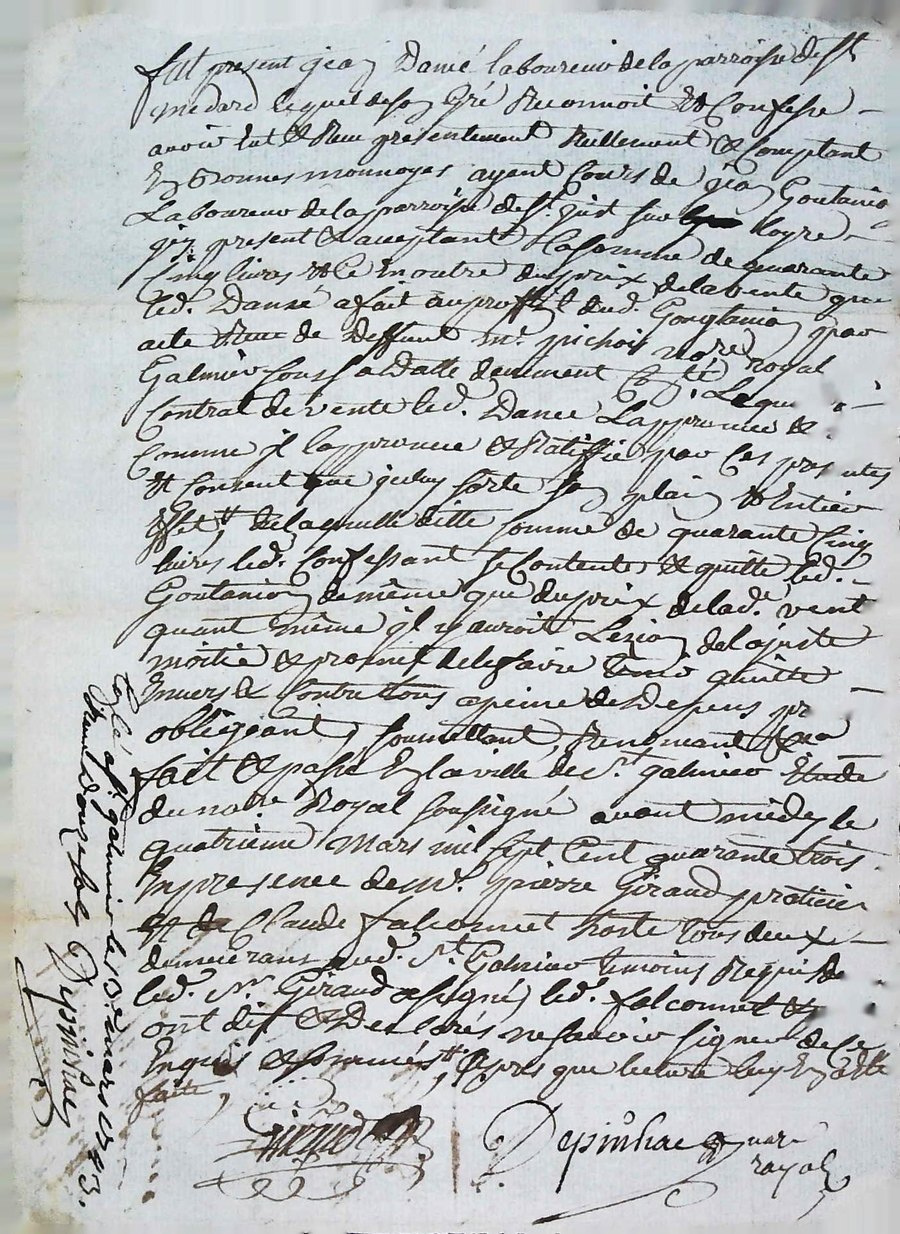 fut present jean Dancé laboureur de la parroisse de st
medard lequel de son gré Reconnoit & Confesse
avoir eut & Receu presentement Reellement & Comptant
En bonnes monnoyes ayant Cours de jean Goutanion
Laboureur de la parroisse de st. just sur loyre
icy present & acceptant la somme de quarante
Cinq livres & Ce En outre du prix de la vente que
led. Dansé a fait au proffit dud. Goutanion par
acte Receu de deffunt mr. pichois no.re royal
Galmier sous sa datte deument
Contrat de vente led. Dance L'approuve &
Comme il l'approuve & Ratiffie par Ces
& Consent que iceluy sorte son plain & Entier
Effet de laquelle ditte somme de quarante Cinq
livres led. Confessant se Contente & quitte led.
Goutanion de même que du prix de lad.e vent
quant même il y auroit Lezion de la juste
moitié & promet de le faire tenir quitte
Envers & Contre tous a peine de Depens
obligeant, soumettant, Renoncant &
fait & passé En la ville de st. galmier Etude
du no.re Royal soussigné avant midy le
quatrieme mars mil sept Cent quarante trois
En presence de mr. pierre Giraud praticien
& de Claude falconnet hoste tous deux
demeurans aud. st. Galmier temoins Requis
led. sr. Giraud a signé, led. falconnet &
ont dit & Declarés ne sçavoir signer de Ce
Enquis & sommés, apres que lecture luy En a Ette
faite,
Giraud
Depinhac no.re
royal
C.lé a st. galmier le 13.e mars 1743.
Receu Douze sols Depinhac